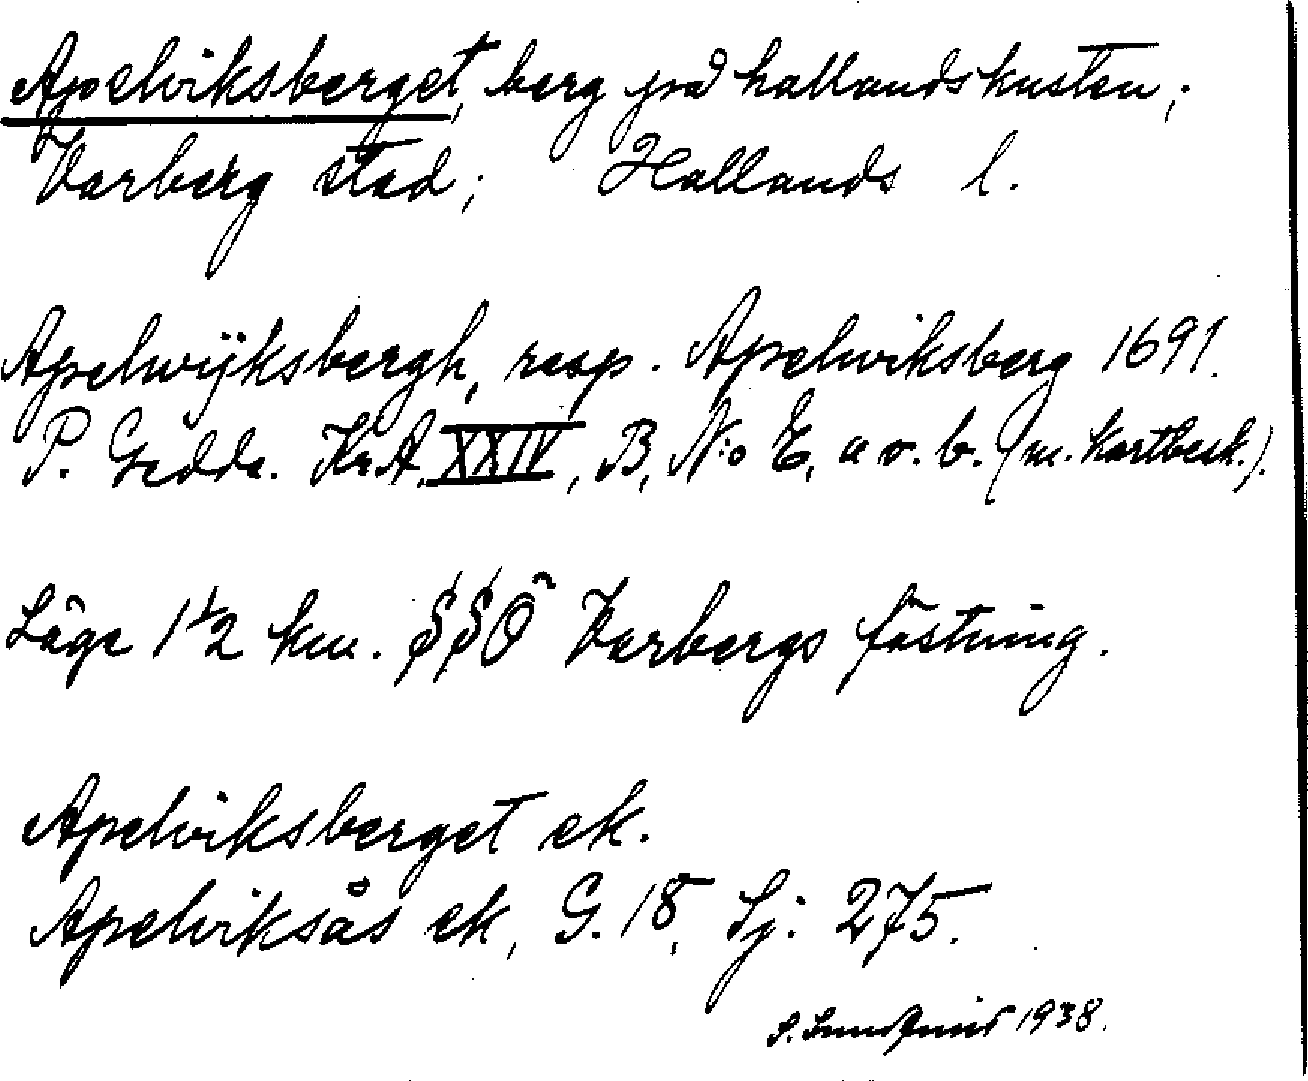 Apelviksberget, berg på hallandskusten;
Varberg stad; Hallands l.
Apelwijksbergh, resp. Apelwiksberg 1691.
P. Gedda. Kr.A. XXIV, B, N:o E, a o. b. (m. kartbesk.).
Läge 1 1/2 km. SSÖ Varbergs fästning.
Apelviksberget ek.
Apelviksås ek, G. 18, Sj: 275.
S. Sundqvist 1938.